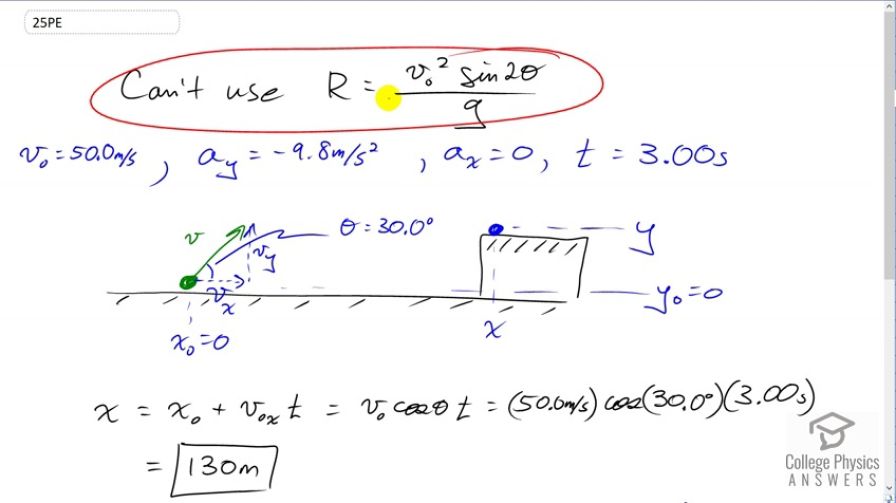 25PE
Can't use R = v₀² sin2θ / g
v₀ = 50.0 m/s , a_y = -9.8 m/s² , a_x = 0 , t = 3.00s
v θ = 30.0° y
v_y
v_x y₀ = 0
x₀ = 0 x
x = x₀ + v₀ₓ t = v₀ cosθ t = (50.0 m/s) cos(30.0°)(3.00s)
= 130m
College Physics
ANSWERS